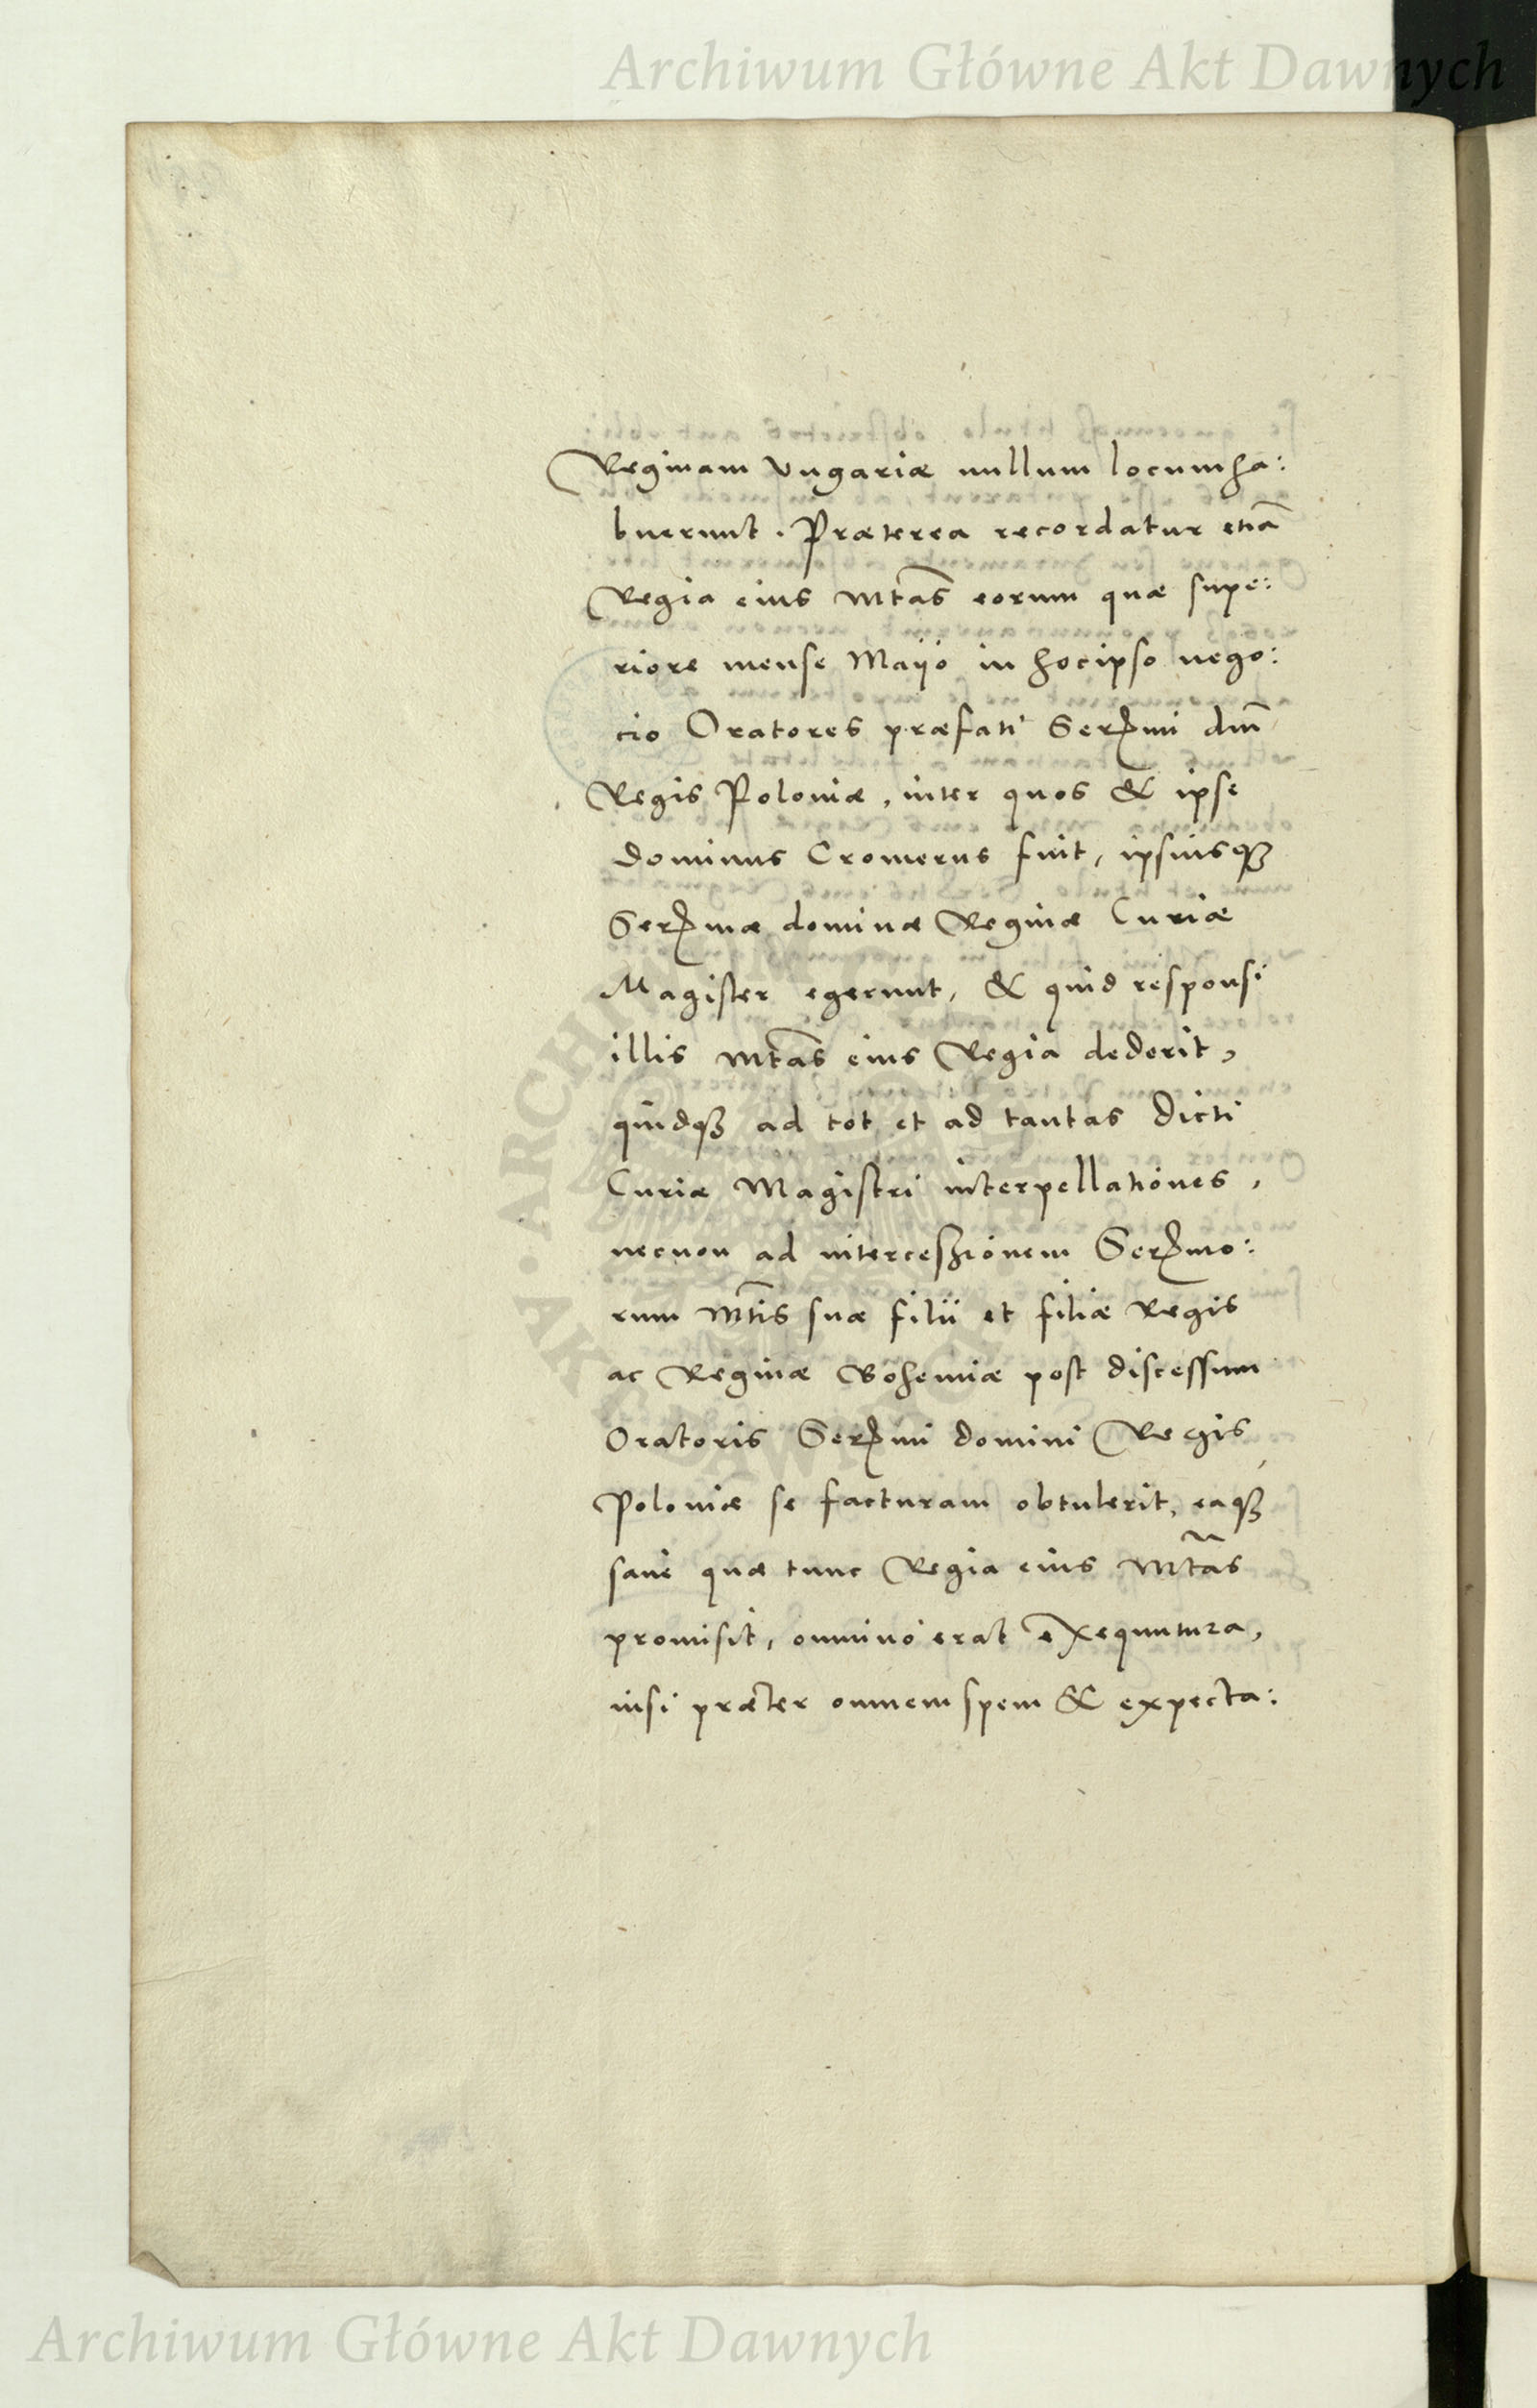 Archiwum Główne Akt Dawnych
Reginam Vngariæ nullum locum ha:
buerunt. Præterea recordatur etiã
Regia eius Mtãs eorum quæ supe:
riore mense Maijo in hoc ipso nego:
cio Oratores præfati Serᵐi dnĩ
Regis Poloniæ, inter quos & ipse
dominus Cromerus fuit, ipsiusqꝫ
Serᵐæ dominæ Reginæ Curiæ
Magister egerunt, & quid responsi
illis Mtãs eius Regia dederit,
quidqꝫ ad tot et ad tantas dicti
Curiæ Magistri interpellationes,
necnon ad intercessionem Serᵐo:
rum Mtĩs suæ filii et filiæ Regis
ac Reginæ Bohemiæ post discessum
Oratoris Serᵐi domini Regis
Poloniæ se facturam obtulerit, eaqꝫ
sane quæ tunc Regia eius Mtãs
promisit, omnino erat exequutura,
nisi præter omnem spem & expecta:
ARCHIWUM GŁÓWNE · AKT DAWNYCH ·
Archiwum Główne Akt Dawnych